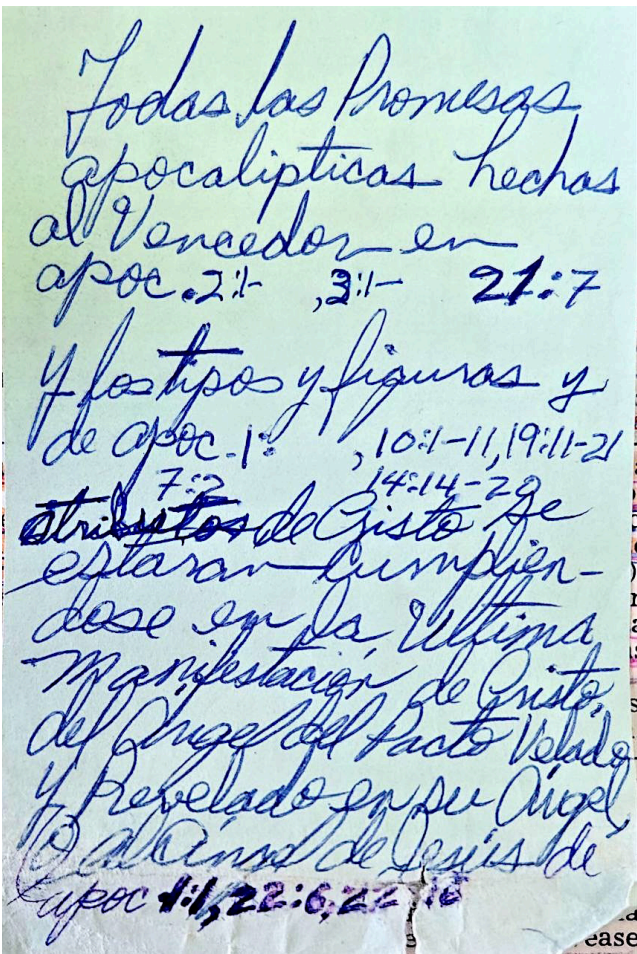 Todas las Promesas
apocalipticas hechas
al Vencedor en
apoc. 2:1- , 3:1- 21:7
y los tipos y figuras y
de apoc. 1: , 10:1-11, 19:11-21
7:2 14:14-20
atributos de Cristo se
estaran cumplien-
dose en la Ultima
Manifestación de Cristo,
del Angel del Pacto Velado
y Revelado en su Angel,
de Jesús de
apoc 1:1, 22:6, 22:16
ease